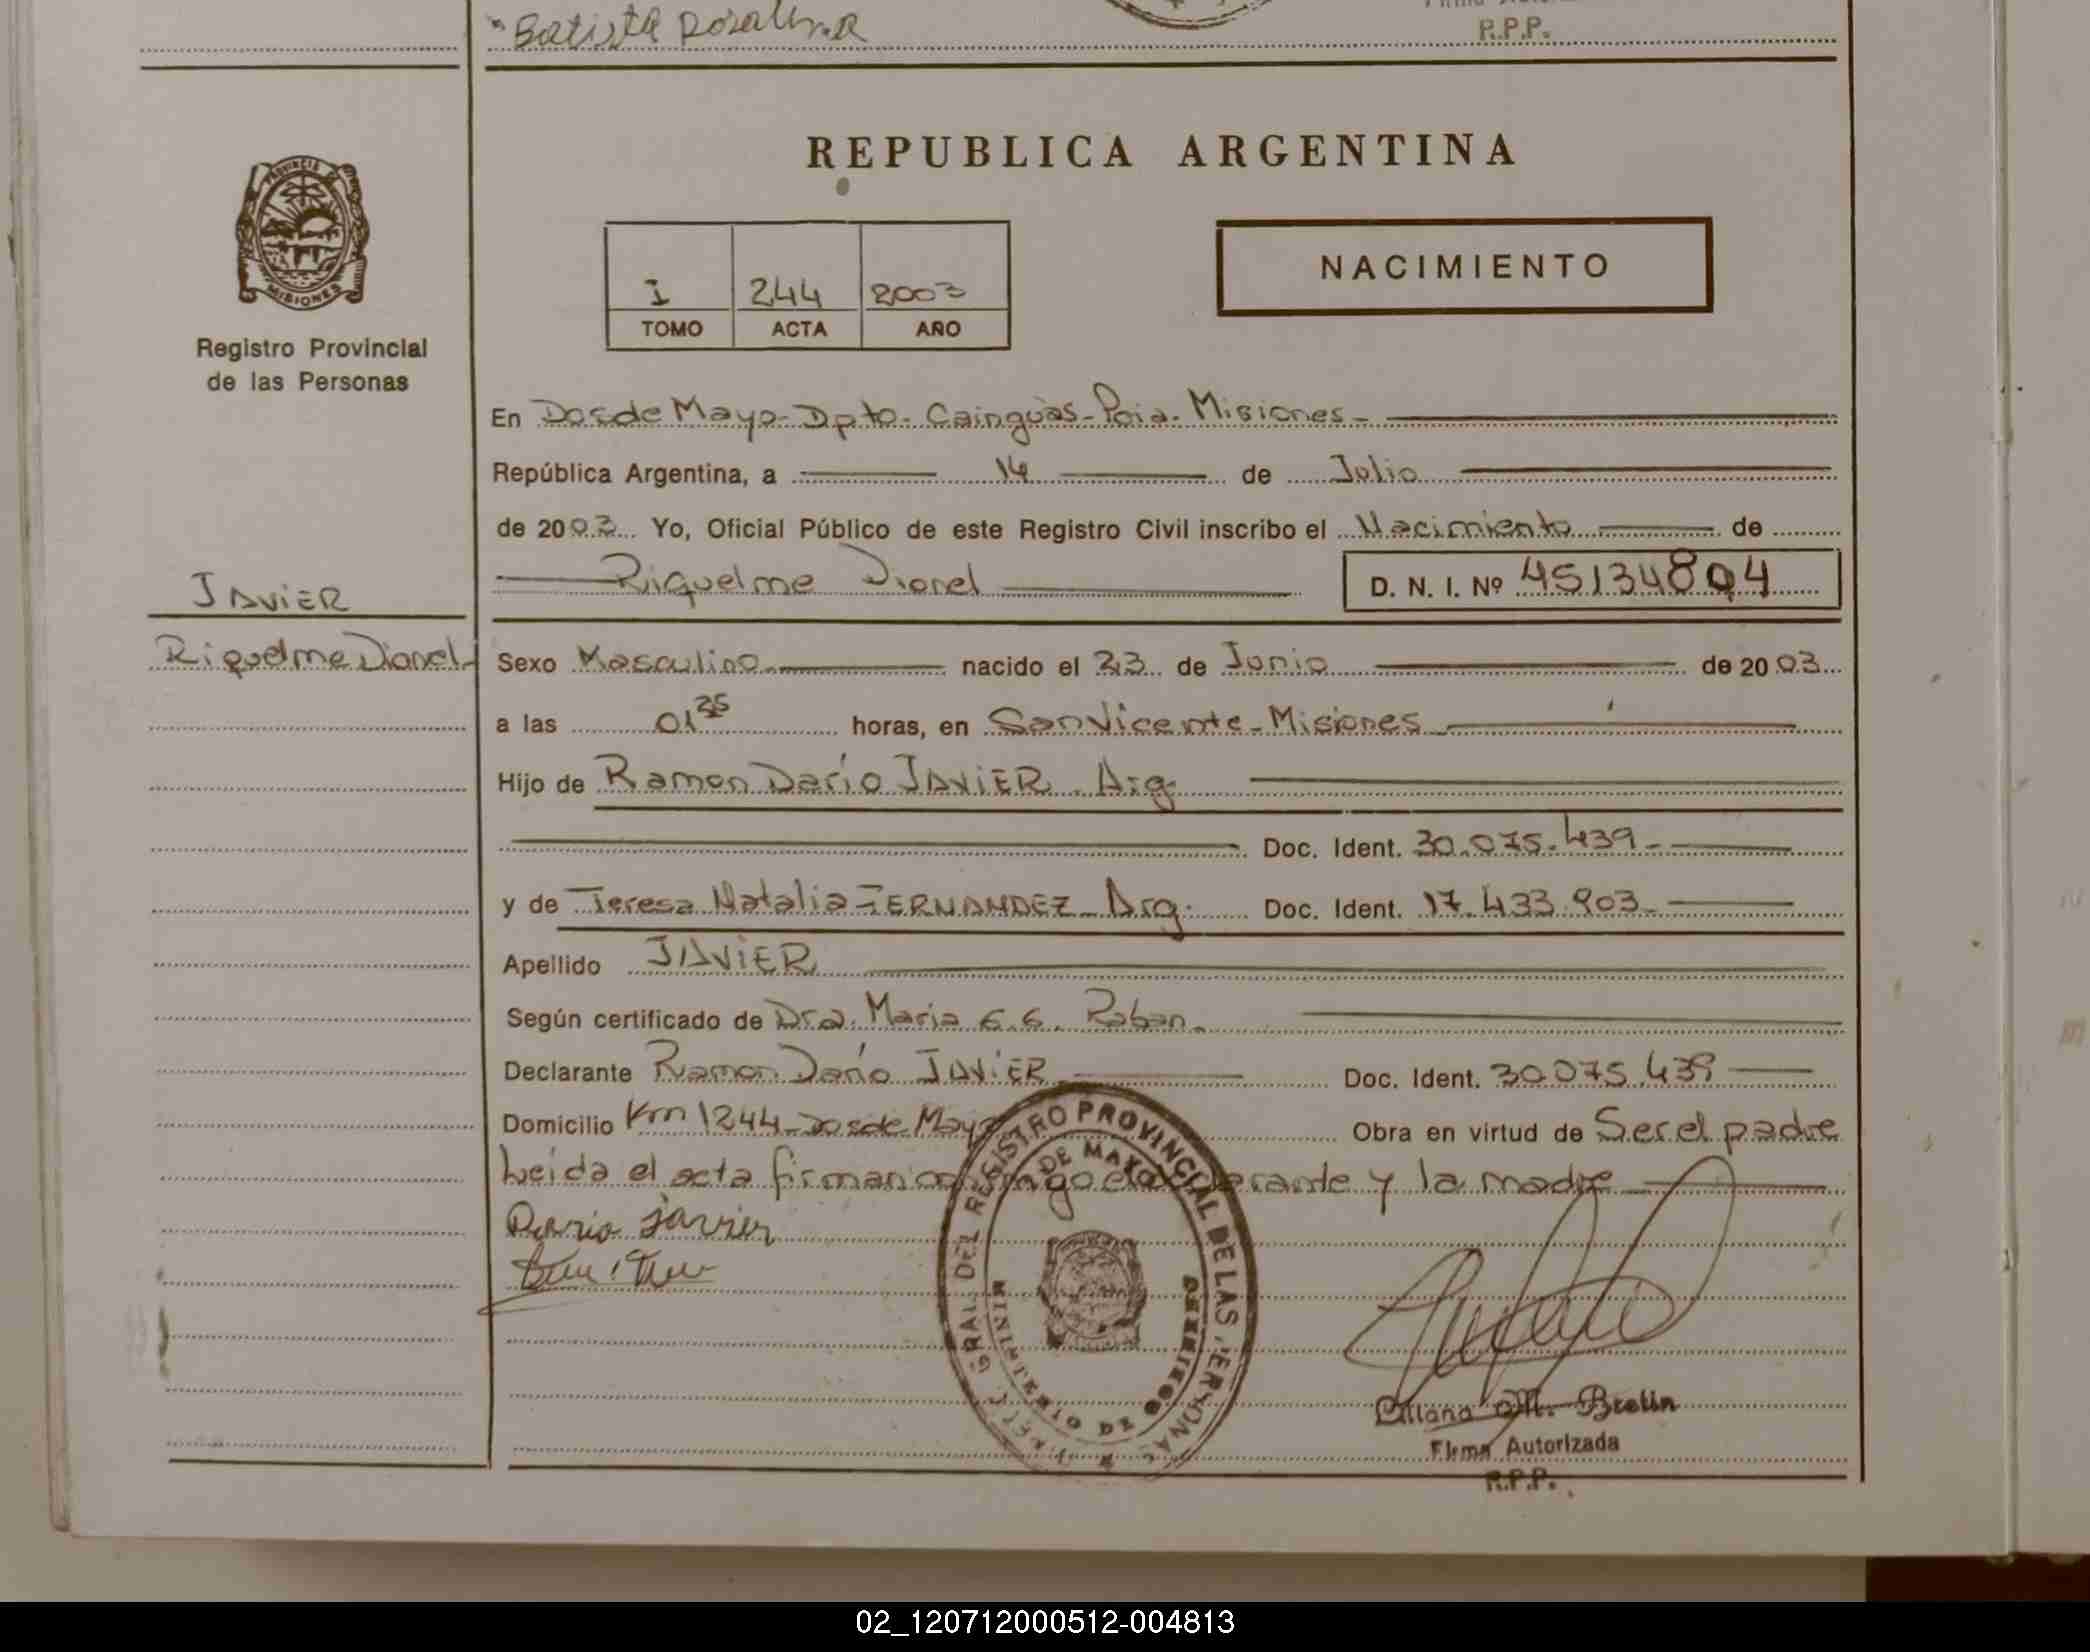 Batista Rosalina
R.P.P.
PROVINCIA DE
MISIONES
Registro Provincial
de las Personas
REPUBLICA ARGENTINA
I 244 2003
TOMO ACTA AÑO
NACIMIENTO
En Dos de Mayo - Dpto. Cainguàs - Pcia. Misiones -
República Argentina, a 14 de Julio
de 2003 Yo, Oficial Público de este Registro Civil inscribo el Nacimiento de
Riquelme Dionel D. N. I. Nº 45134804
JAVIER
Riquelme Dionel
Sexo Masculino nacido el 23 de Junio de 2003
a las 01 35 horas, en San Vicente - Misiones
Hijo de Ramon Darío JAVIER. Arg.
Doc. Ident. 30.075.439.-
y de Teresa Natalia FERNANDEZ - Arg. Doc. Ident. 17.433.903.-
Apellido JAVIER
Según certificado de Dra. Maria G.G. Raban.
Declarante Ramon Darío JAVIER Doc. Ident. 30.075.439
Domicilio Km 1244 - Dos de Mayo Obra en virtud de Ser el padre
Leida el acta firman conmigo el declarante y la madre
Dario Javier
DEL REGISTRO PROVINCIAL DE LAS PERSONAS
DE MAYO
Liliana M. Bretin
Firma Autorizada
R.P.P.
02_120712000512-004813